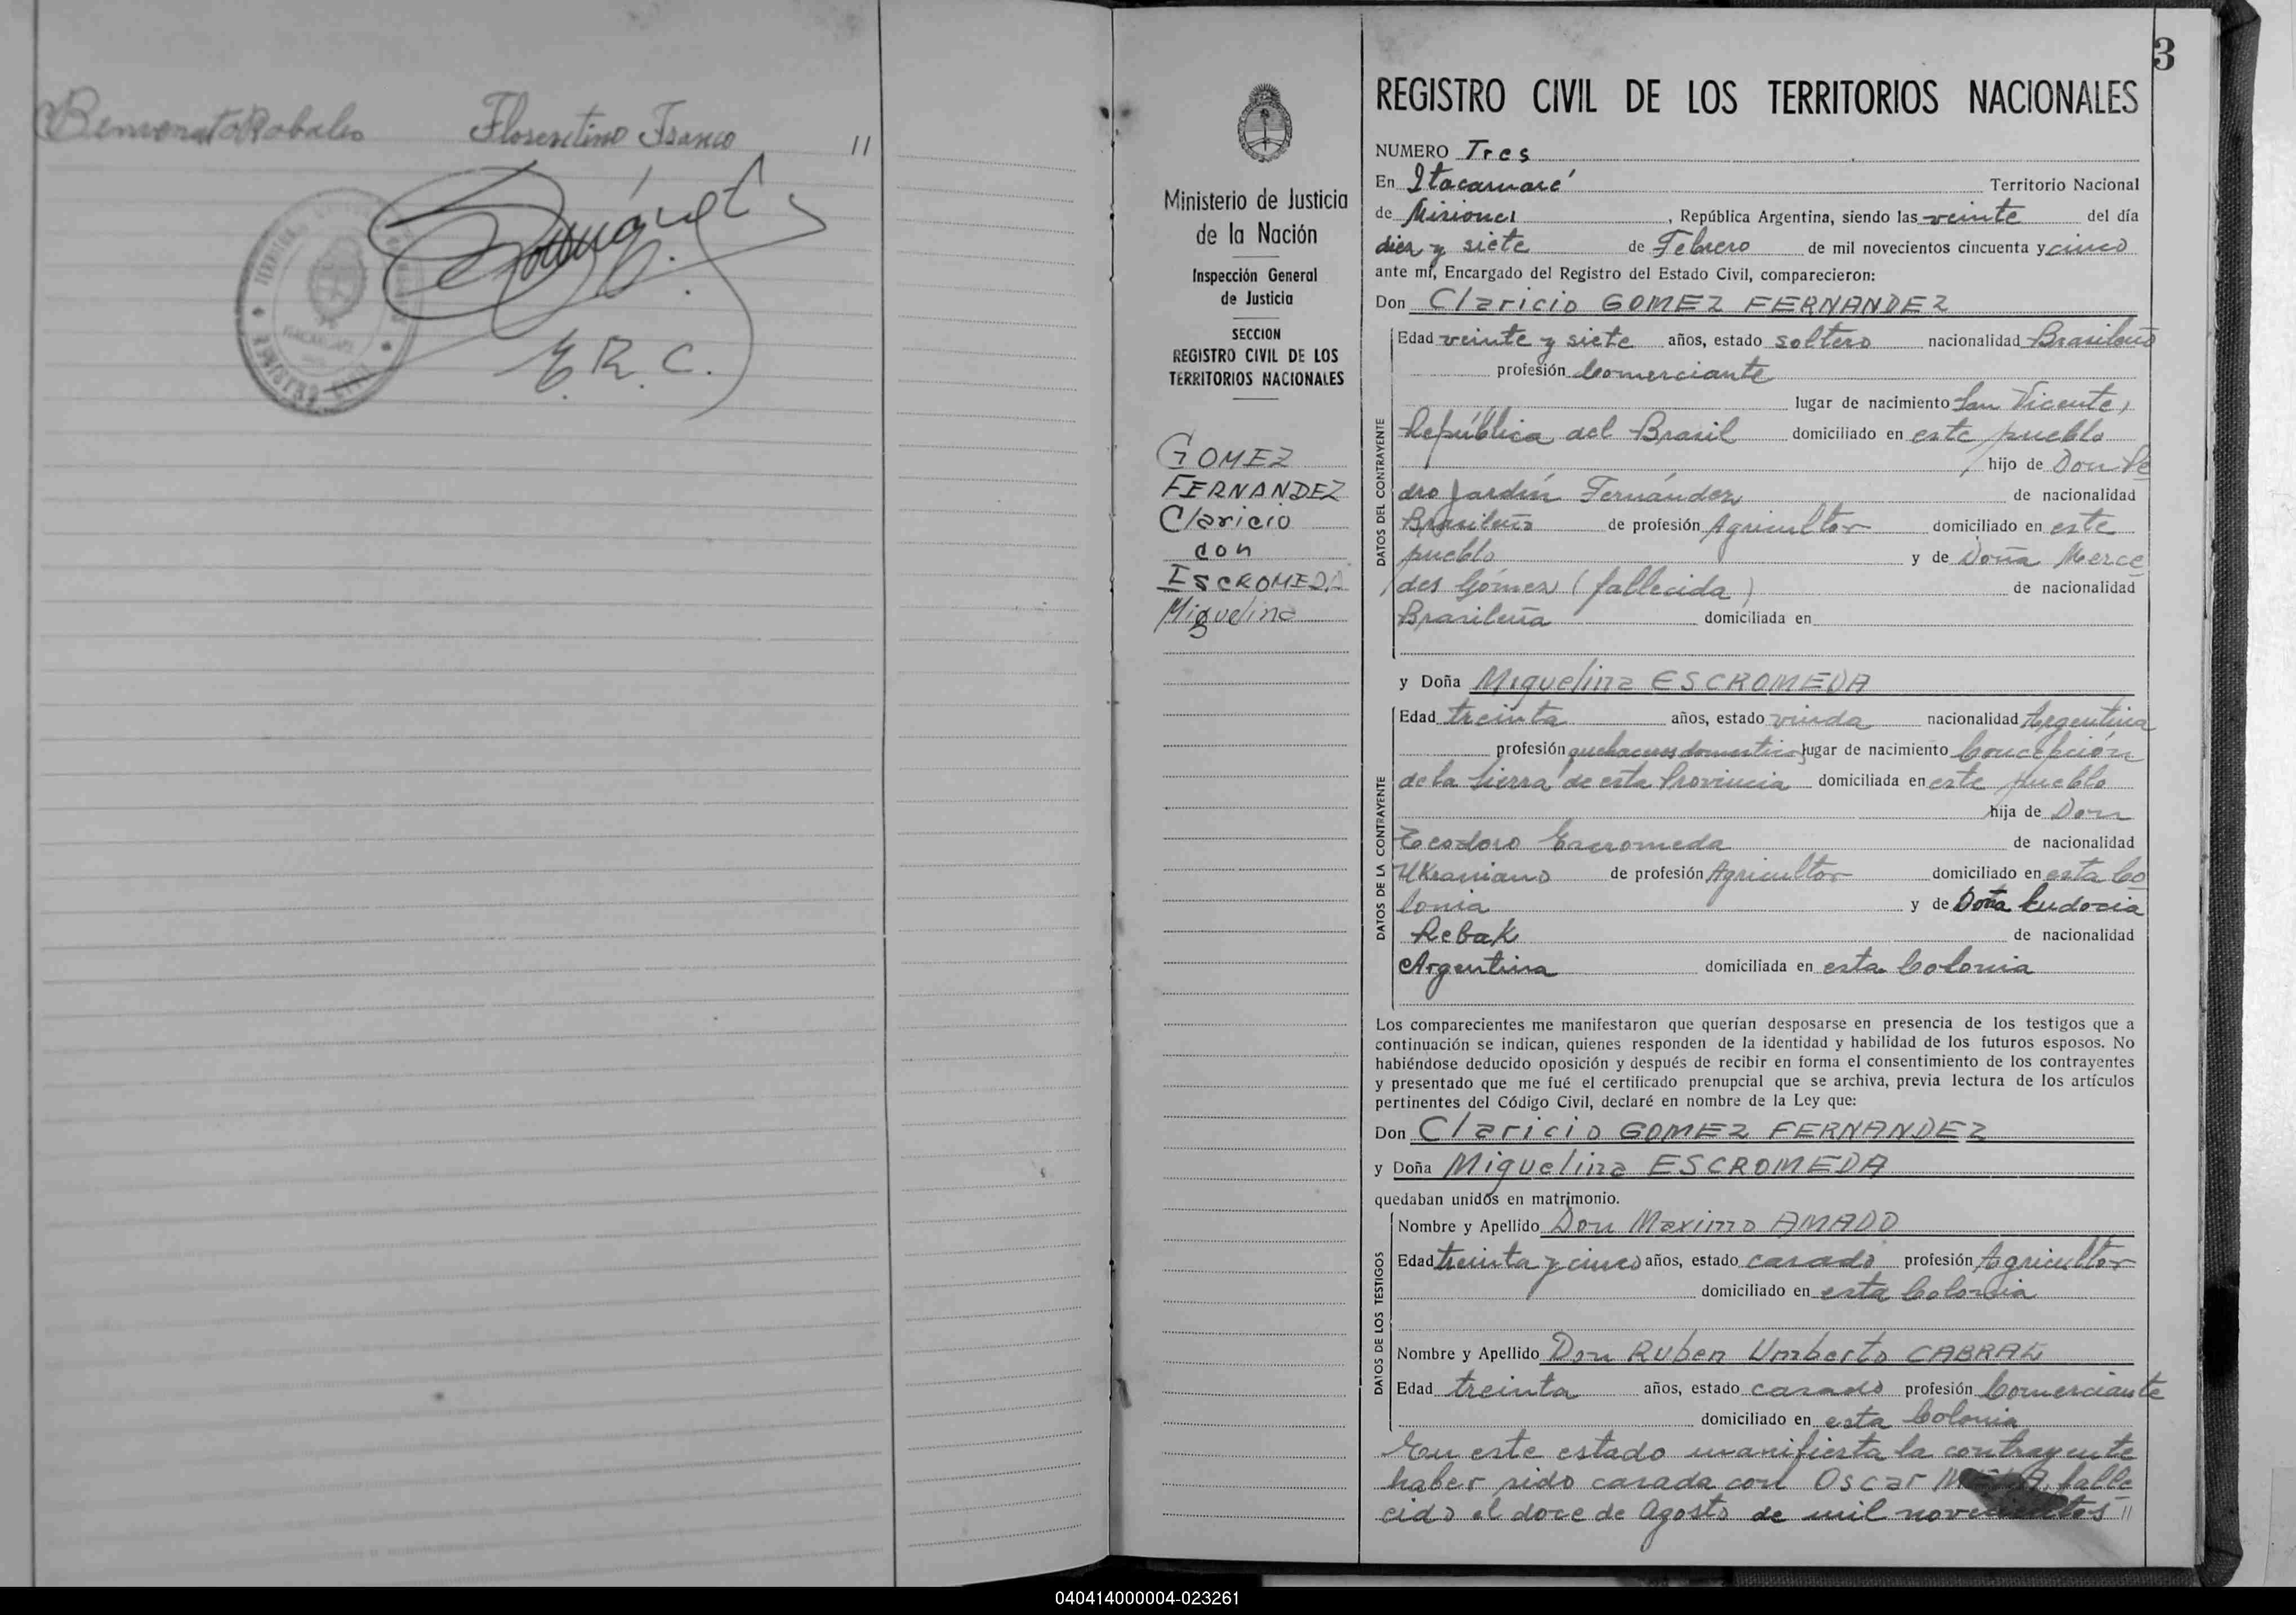 Florentino Franco //
E. R. C.
3
Ministerio de Justicia
de la Nación
Inspección General
de Justicia
SECCION
REGISTRO CIVIL DE LOS
TERRITORIOS NACIONALES
GOMEZ
FERNANDEZ
Claricio
con
ESCROMEDA
Miguelina
REGISTRO CIVIL DE LOS TERRITORIOS NACIONALES
NUMERO Tres
En Itacaruaré Territorio Nacional
de Misiones, República Argentina, siendo las veinte del día
diez y siete de Febrero de mil novecientos cincuenta y cinco
ante mí, Encargado del Registro del Estado Civil, comparecieron:
Don Claricio GOMEZ FERNANDEZ
DATOS DEL CONTRAYENTE
Edad veinte y siete años, estado soltero nacionalidad Brasileño
profesión Comerciante
lugar de nacimiento San Vicente,
República del Brasil domiciliado en este pueblo
hijo de Don Pe
dro Jardín Fernández de nacionalidad
Brasileño de profesión Agricultor domiciliado en este
pueblo y de Doña Merce
des Gómez (fallecida) de nacionalidad
Brasileña domiciliada en
y Doña Miguelina ESCROMEDA
DATOS DE LA CONTRAYENTE
Edad treinta años, estado viuda nacionalidad Argentina
profesión quehaceres domesticos lugar de nacimiento Concepción
de la Sierra de esta Provincia domiciliada en este pueblo
hija de Don
Teodoro Escromeda de nacionalidad
Ukraniano de profesión Agricultor domiciliado en esta Co
lonia y de Doña Eudocia
Rebak de nacionalidad
Argentina domiciliada en esta Colonia
Los comparecientes me manifestaron que querían desposarse en presencia de los testigos que a
continuación se indican, quienes responden de la identidad y habilidad de los futuros esposos. No
habiéndose deducido oposición y después de recibir en forma el consentimiento de los contrayentes
y presentado que me fué el certificado prenupcial que se archiva, previa lectura de los artículos
pertinentes del Código Civil, declaré en nombre de la Ley que:
Don Claricio GOMEZ FERNANDEZ
y Doña Miguelina ESCROMEDA
quedaban unidos en matrimonio.
DATOS DE LOS TESTIGOS
Nombre y Apellido Don Maximo AMADO
Edad treinta y cinco años, estado casado profesión Agricultor
domiciliado en esta Colonia
Nombre y Apellido Don Ruben Umberto CABRAL
Edad treinta años, estado casado profesión Comerciante
domiciliado en esta Colonia
En este estado manifiesta la contrayente
haber sido casada con Oscar falle
cido el doce de Agosto de mil novecientos //
040414000004-023261